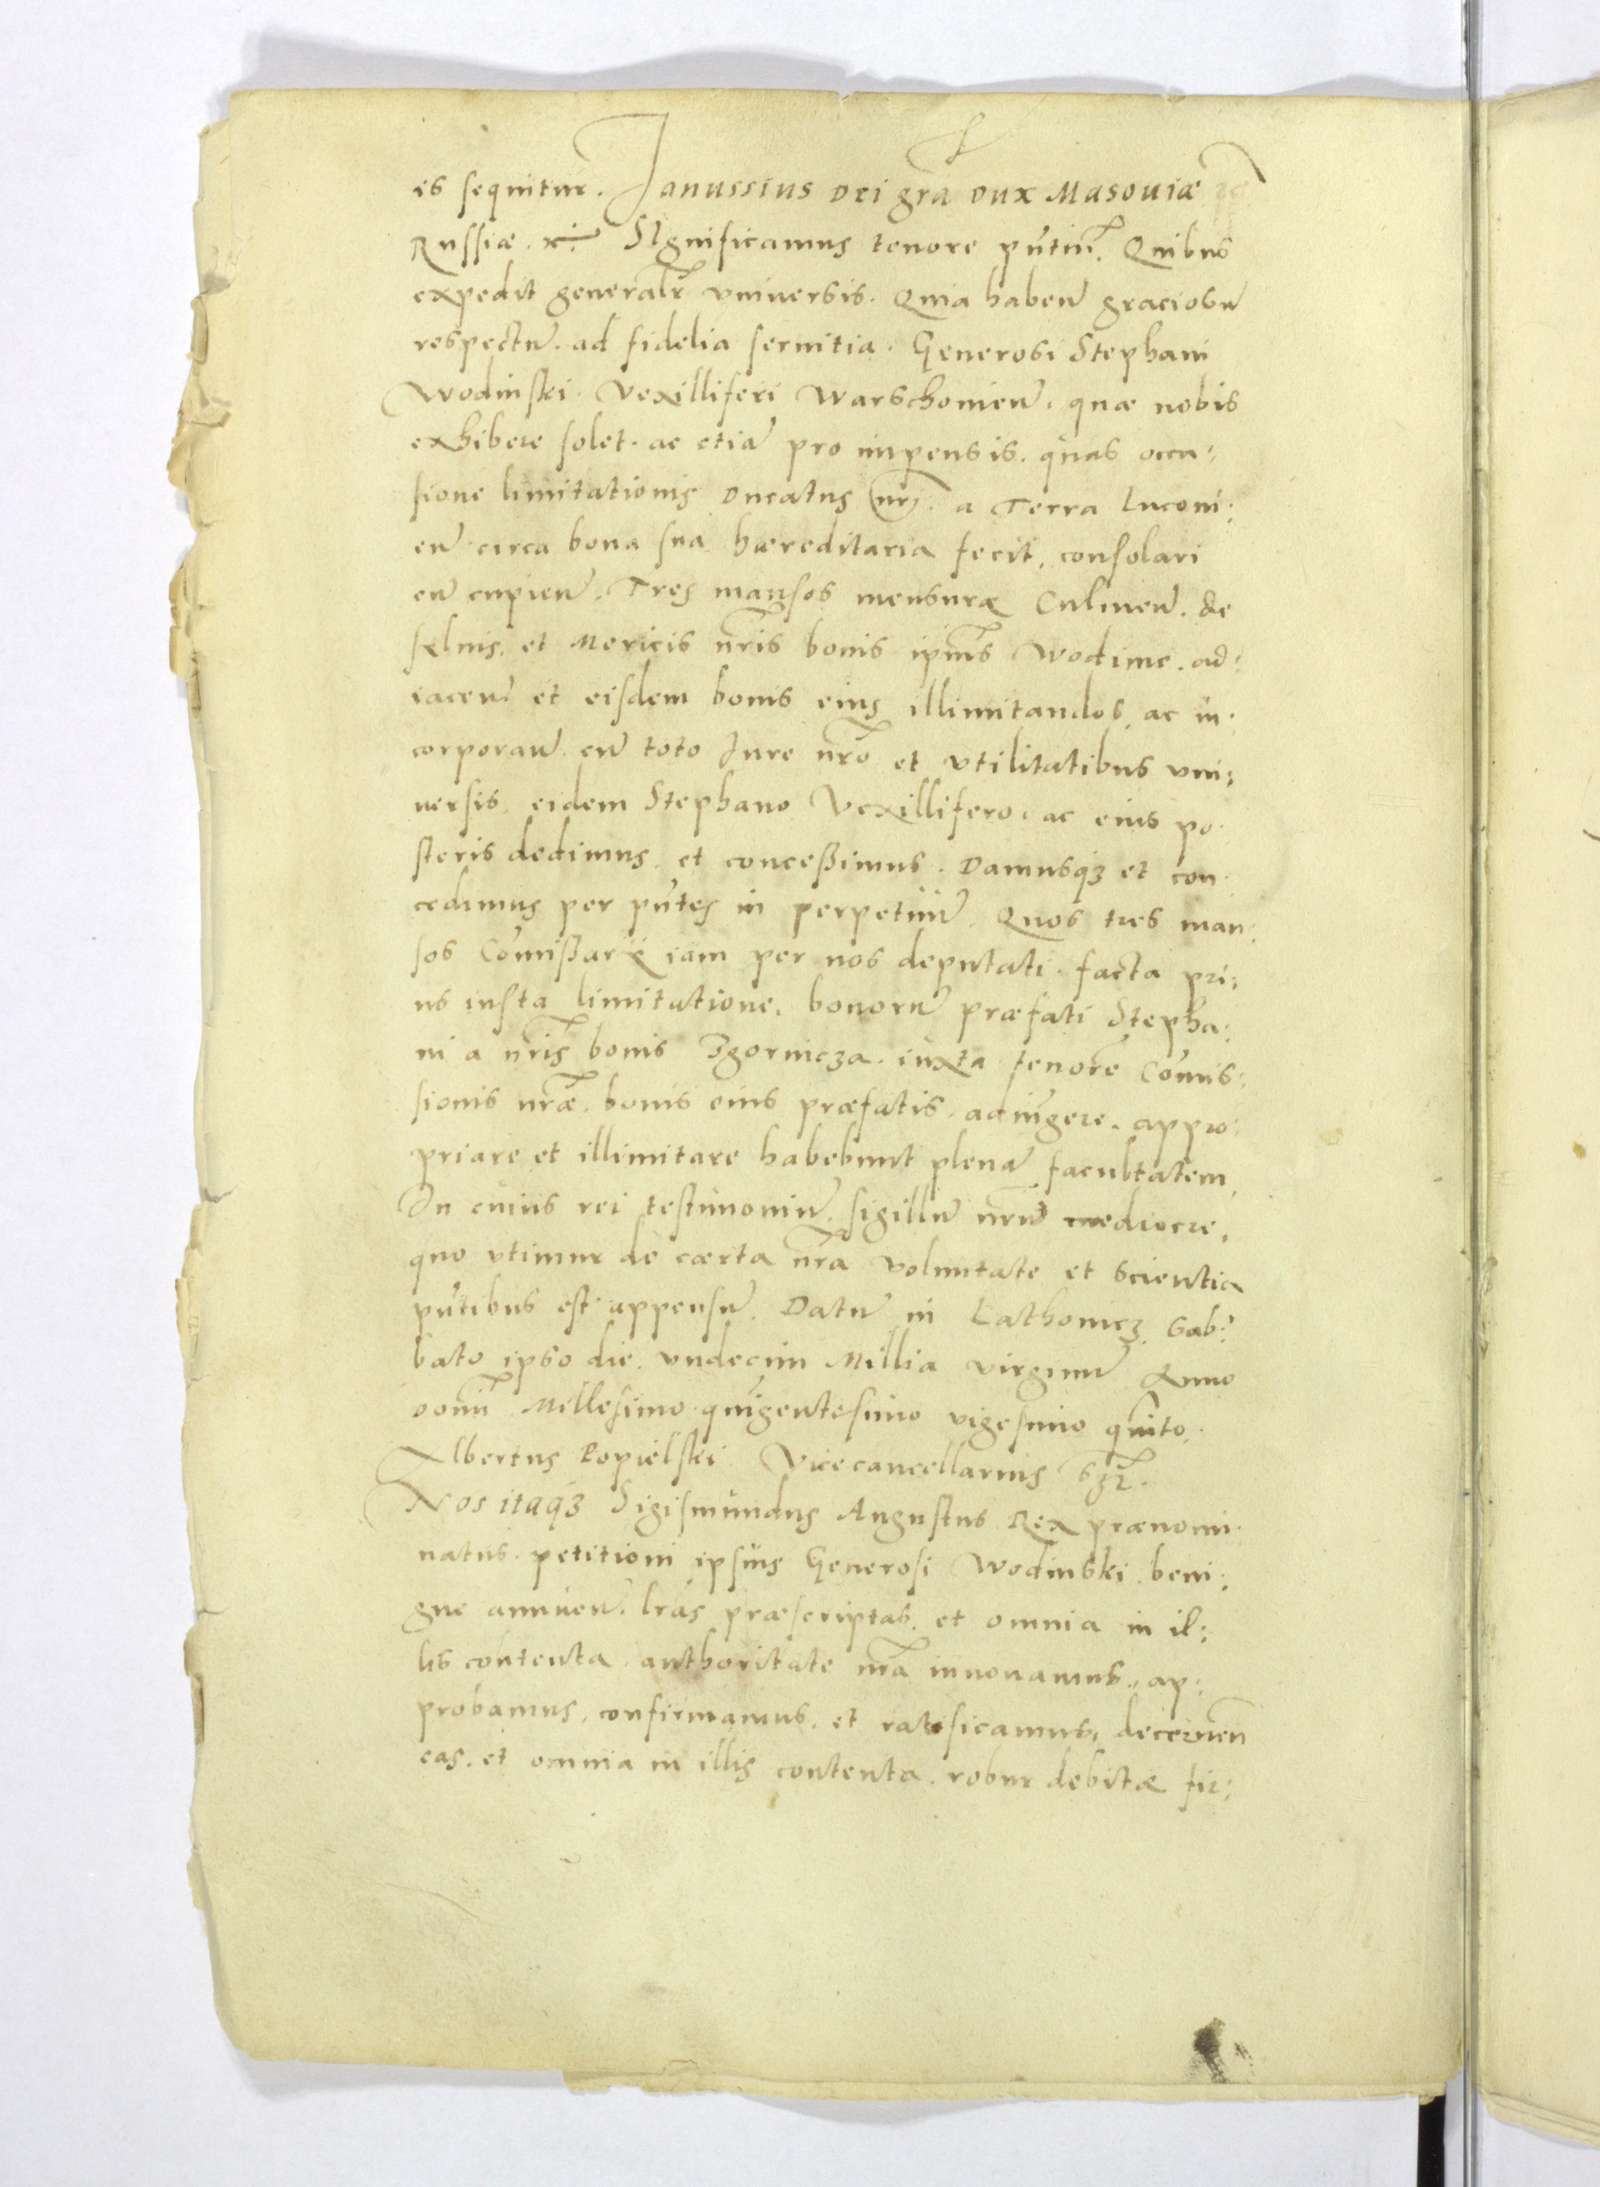 es sequitur. Janussius Dei gr̃a Dux Masouiæ
Russiæ. Significamus tenore pñtiũ. Quibus
expedit generalr̃ vniuersis. Quia habeñ graciosũ
respectũ. ad fidelia seruitia. Generosi Stephani
Wodinski. Vexilliferi Warschouieñ. quæ nobis
exhibere solet. ac etiã pro impensis. quas occa:
sione limitationis Ducatus nr̃i. a Terra Luconi:
eñ circa bona sua hæreditaria fecit, consolari
eũ cupieñ. Tres mansos mensuræ Culmeñ. de
syluis, et Mericis nr̃is bonis ipius Wodinie. ad:
iaceñ et eisdem bonis eius illimitandos, ac in
corporañ cũ toto Jure nr̃o et vtilitatibus vni:
uersis, eidem Stephano Vexillifero, ac eius po
steris dedimus, et conceßimus. Damusqȝ et con
cedimus per pñtes in perpetuũ. Quos tres man:
sos Cõmißarii iam per nos deputati. facta pri:
us iusta limitatione, bonorũ præfati Stepha:
ni a nr̃is bonis Zgornicza. iuxta tenorẽ Cõmis:
sionis nr̃æ. bonis eius præfatis, adiũgere, appro:
priare, et illimitare habebunt plenã facultatem.
In cuius rei testimoniũ, sigillũ nr̃ũ mediocre,
quo vtimur de cærta nr̃a voluntate et scientia
pñtibus est appensũ. Datũ in Lathouicz. Sab:
bato ipso die. vndecim Millia virginũ Anno
Domĩ Millesimo quĩgentesimo vigesimo quĩto.
Albertus Popielski. Vicecancellarius szt.
Nos itaqȝ Sigismundus Augustus Rex prænomi
natus. petitioni ipsius Generosi Wodinski. beni:
gne annueñ. lr̃as præscriptas, et omnia in il:
lis contenta, authoritate nr̃a innouamus, ap:
probamus, confirmamus, et ratificamus, decerneñ
eas, et omnia in illis contenta. robur debitæ fir: